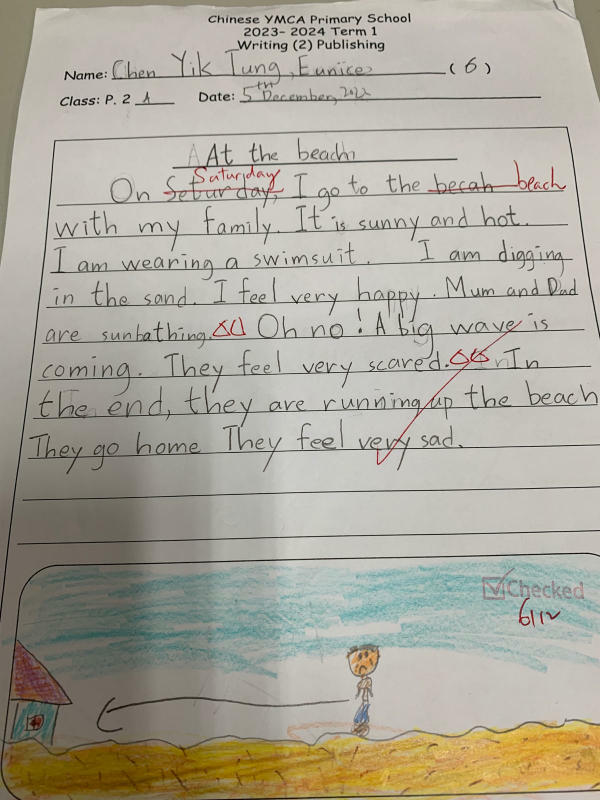 Chinese YMCA Primary School
2023- 2024 Term 1
Writing (2) Publishing
Name: Chen Yik Tung, Eunice (6)
Class: P. 2 A Date: 5th December, 2022
At the beach
Saturday
On Seturday, I go to the becah beach
with my family. It is sunny and hot.
I am wearing a swimsuit. I am digging
in the sand. I feel very happy. Mum and Dad
are sunbathing. Oh no! A big wave is
coming. They feel very scared. In
the end, they are running up the beach
They go home They feel very sad.
Checked
6/12